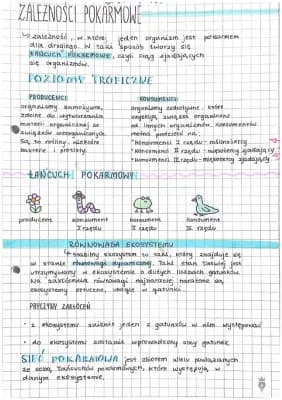 ZALEŻNOŚCI POKARMOWE
↳ zależność, w której jeden organizm jest pokarmem
dla drugiego. W taki sposób tworzy się
ŁAŃCUCH POKARMOWY, czyli ciąg zjadających
się organizmów.
POZIOMY TROFICZNE
PRODUCENCI
organizmy samożywne,
zdolne do wytwarzania
materii organicznej ze
związków nieorganicznych.
Są to rośliny, niektóre
bakterie i protisty.
KONSUMENCI
organizmy cudzożywne, które
związki organiczne
od innych organizmów. Konsumentów
można podzielić na:
• konsumenci I rzędu - roślinożercy
• konsumenci II rzędu - mięsożercy zjadający
• konsumenci III rzędu - mięsożercy zjadający
ŁAŃCUCH POKARMOWY
producent konsument konsument konsument
I rzędu II rzędu III rzędu
RÓWNOWAGA EKOSYSTEMU
↳ stabilny ekosystem to taki, który znajduje się
w stanie równowagi dynamicznej. Taki stan łatwiej jest
utrzymywany w ekosystemie o dużych liczbach gatunków.
Na zakłócenia równowagi najbardziej narażone są
ekosystemy sztuczne, ubogie w gatunki.
PRZYCZYNY ZAKŁÓCEŃ
• z ekosystemu zniknie jeden z gatunków w nim występujących
• do ekosystemu zostanie wprowadzony obcy gatunek
SIEĆ POKARMOWA jest zbiorem wielu powiązanych
ze sobą łańcuchów pokarmowych, które występują w
danym ekosystemie.